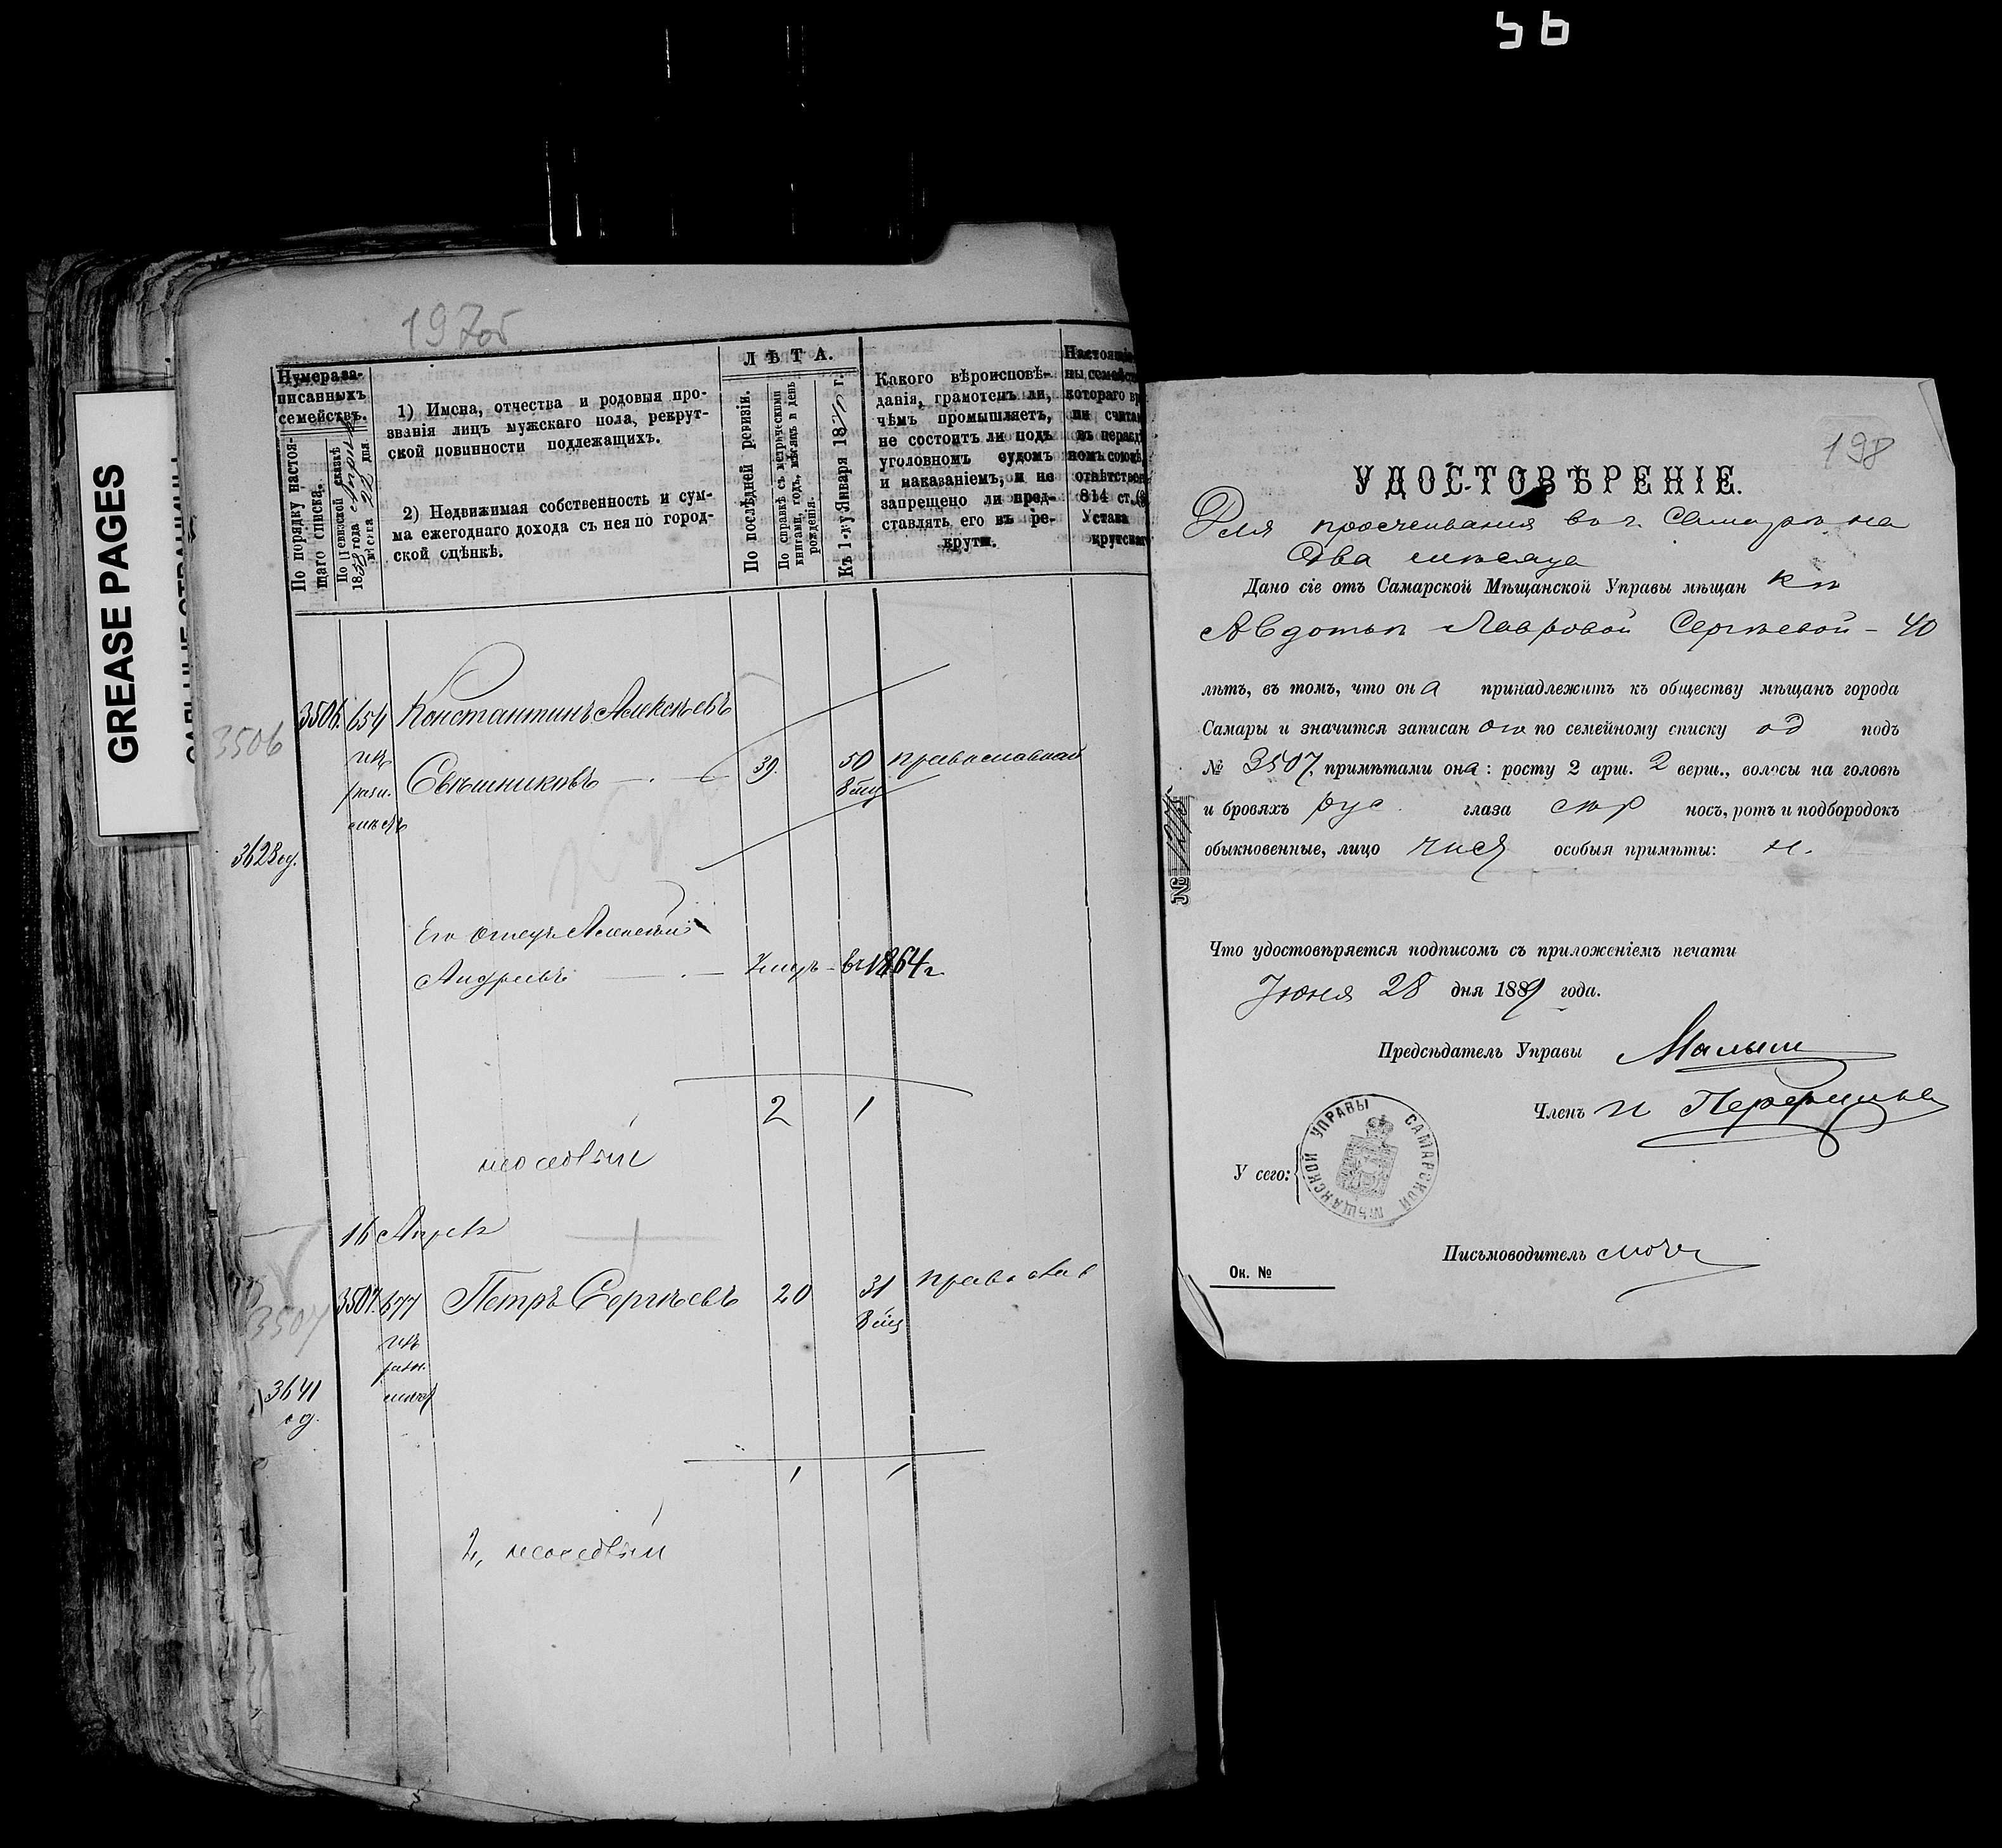 56
GREASE PAGES
197об
Нумера за-
писанныхъ
семействъ.
По порядку настоя-
щаго списка.
По Ревизской сказкѣ
1858 года
мѣсяца 26 дня
1) Имена, отчества и родовыя про-
званія лицъ мужскаго пола, рекрут-
ской повинности подлежащихъ.
2) Недвижимая собственность и сум-
ма ежегоднаго дохода съ нея по город-
ской оцѣнкѣ.
ЛѢТА.
По послѣдней ревизіи.
По справкѣ съ метрическими
книгами, годъ, мѣсяцъ и день
рожденія.
Къ 1-му Января 18 г.
Какого вѣроисповѣ-
данія, грамотенъ ли,
чѣмъ промышляетъ,
не состоитъ ли подъ
уголовномъ судомъ
и наказаніемъ, и не
запрещено ли пред-
ставлять его въ ре-
круты.
Настоящіе
ны семейст
котораго вр
ли счита
въ перазд
номъ союзѣ,
отвѣтствен
814 ст.
Устава
крутскаг
3506
3506. 654 Константинъ Алексѣевъ
Свѣшниковъ 39. 50 православнай
3628 од.
Его отецъ Алексѣй
Андреевъ умеръ въ 1864 г.
2 1
неоседлый
16
3507
3507. 677 Петръ Сергѣевъ 20 31 православ
3641
од.
1 1
2, неоседлый
198
УДОСТОВѢРЕНІЕ.
Для проживания в г. Самарѣ на
Два мѣсяца
Дано сіе отъ Самарской Мѣщанской Управы мѣщан кѣ
Авдотьѣ Лавровой Сергѣевой - 40
лѣтъ, въ томъ, что он а принадлежитъ къ обществу мѣщанъ города
Самары и значится записан ою по семейному списку од подъ
№ 3507, примѣтами она: росту 2 арш. 2 верш., волосы на головѣ
и бровяхъ рус глаза сѣр носъ, ротъ и подбородокъ
обыкновенные, лицо чист особыя примѣты: н.
Что удостовѣряется подписомъ съ приложеніемъ печати
Іюня 28 дня 1889 года.
Предсѣдатель Управы
Членъ
У сего:
САМАРСКОЙ МѢЩАНСКОЙ УПРАВЫ
Письмоводитель
Ок. №
№